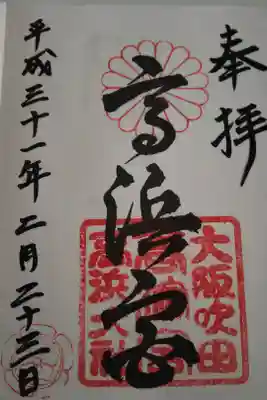 奉拝
高浜宮
平成三十一年二月二十三日
大阪吹田
高浜大社